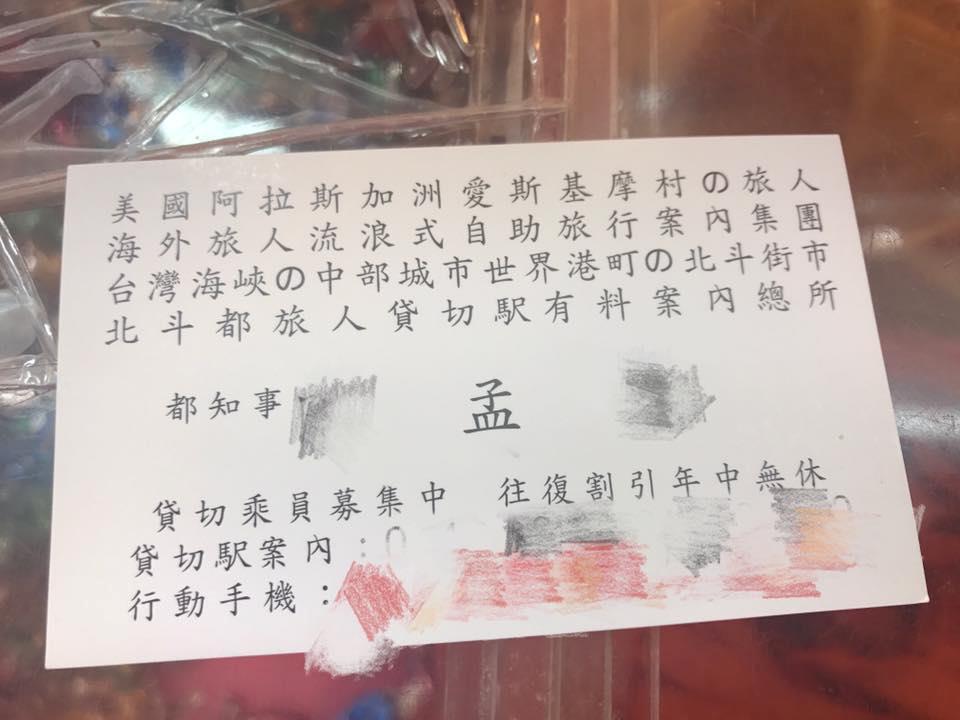 美國阿拉斯加洲愛斯基摩村の旅人
海外旅人流浪式自助旅行案內集團
台灣海峽の中部城市世界港町の北斗街市
北斗都旅人貸切駅有料案內總所
都知事 孟
貸切乘員募集中 往復割引年中無休
貸切駅案內：0
行動手機：